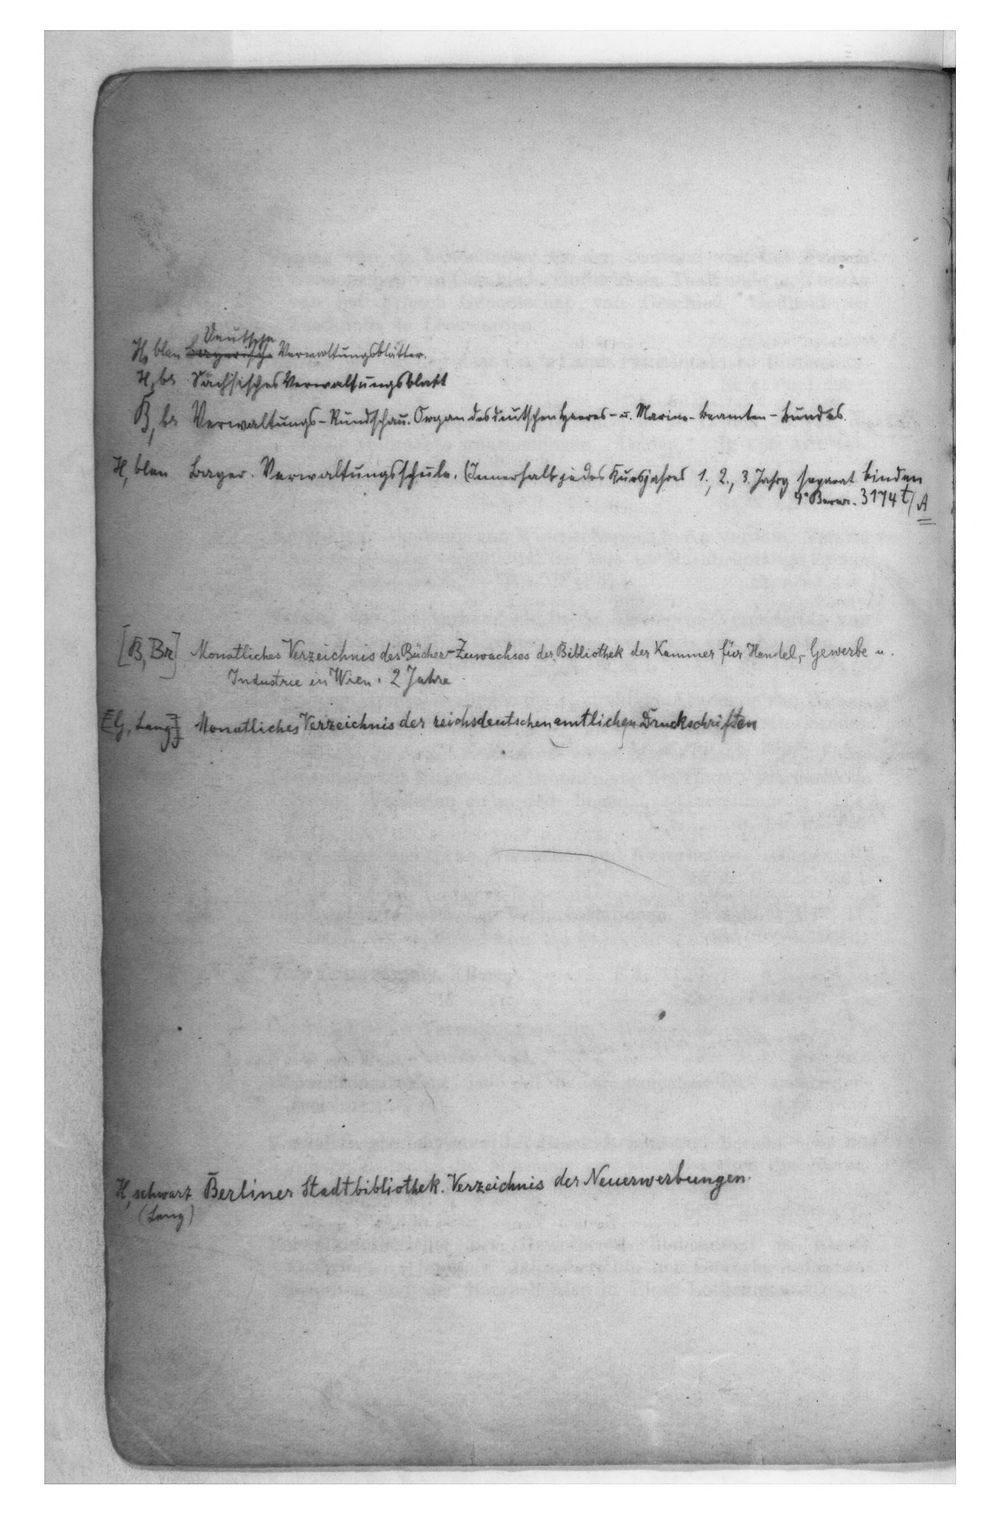 Deutsche
H, blau Bayerische Verwaltungsblätter.
H, br Sächsisches Verwaltungsblatt
B, br Verwaltungs-Rundschau. Organ des deutschen Heeres- u. Marine-Beamten-Bundes.
H, blau Bayer. Verwaltungsschule. (Innerhalb jedes Kursjahres 1., 2., 3. Jahrg separat binden
4° Bavar. 3174 t/A
[B, Br] Monatliches Verzeichnis des Bücher-Zuwachses der Bibliothek der Kammer für Handel,- Gewerbe u.
Industrie in Wien. 2 Jahre
Lang Monatliches Verzeichnis der reichsdeutschen amtlichen Druckschriften
H, schwarz Berliner Stadtbibliothek. Verzeichnis der Neuerwerbungen.
(Lang)